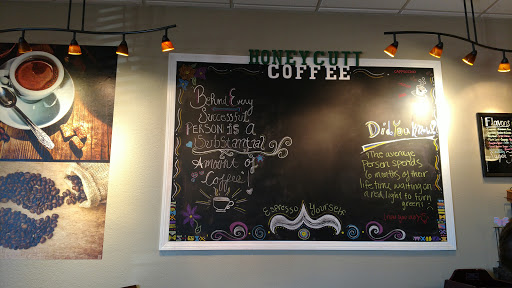 HONEYCUTT
COFFEE
Behind Every
Successful
PERSON is A
Substantial
Amount of
Coffee
Did You Know
The average
person spends
6 months of their
life time waiting on
a red light to turn
green!
Espresso Yourself
Flavors